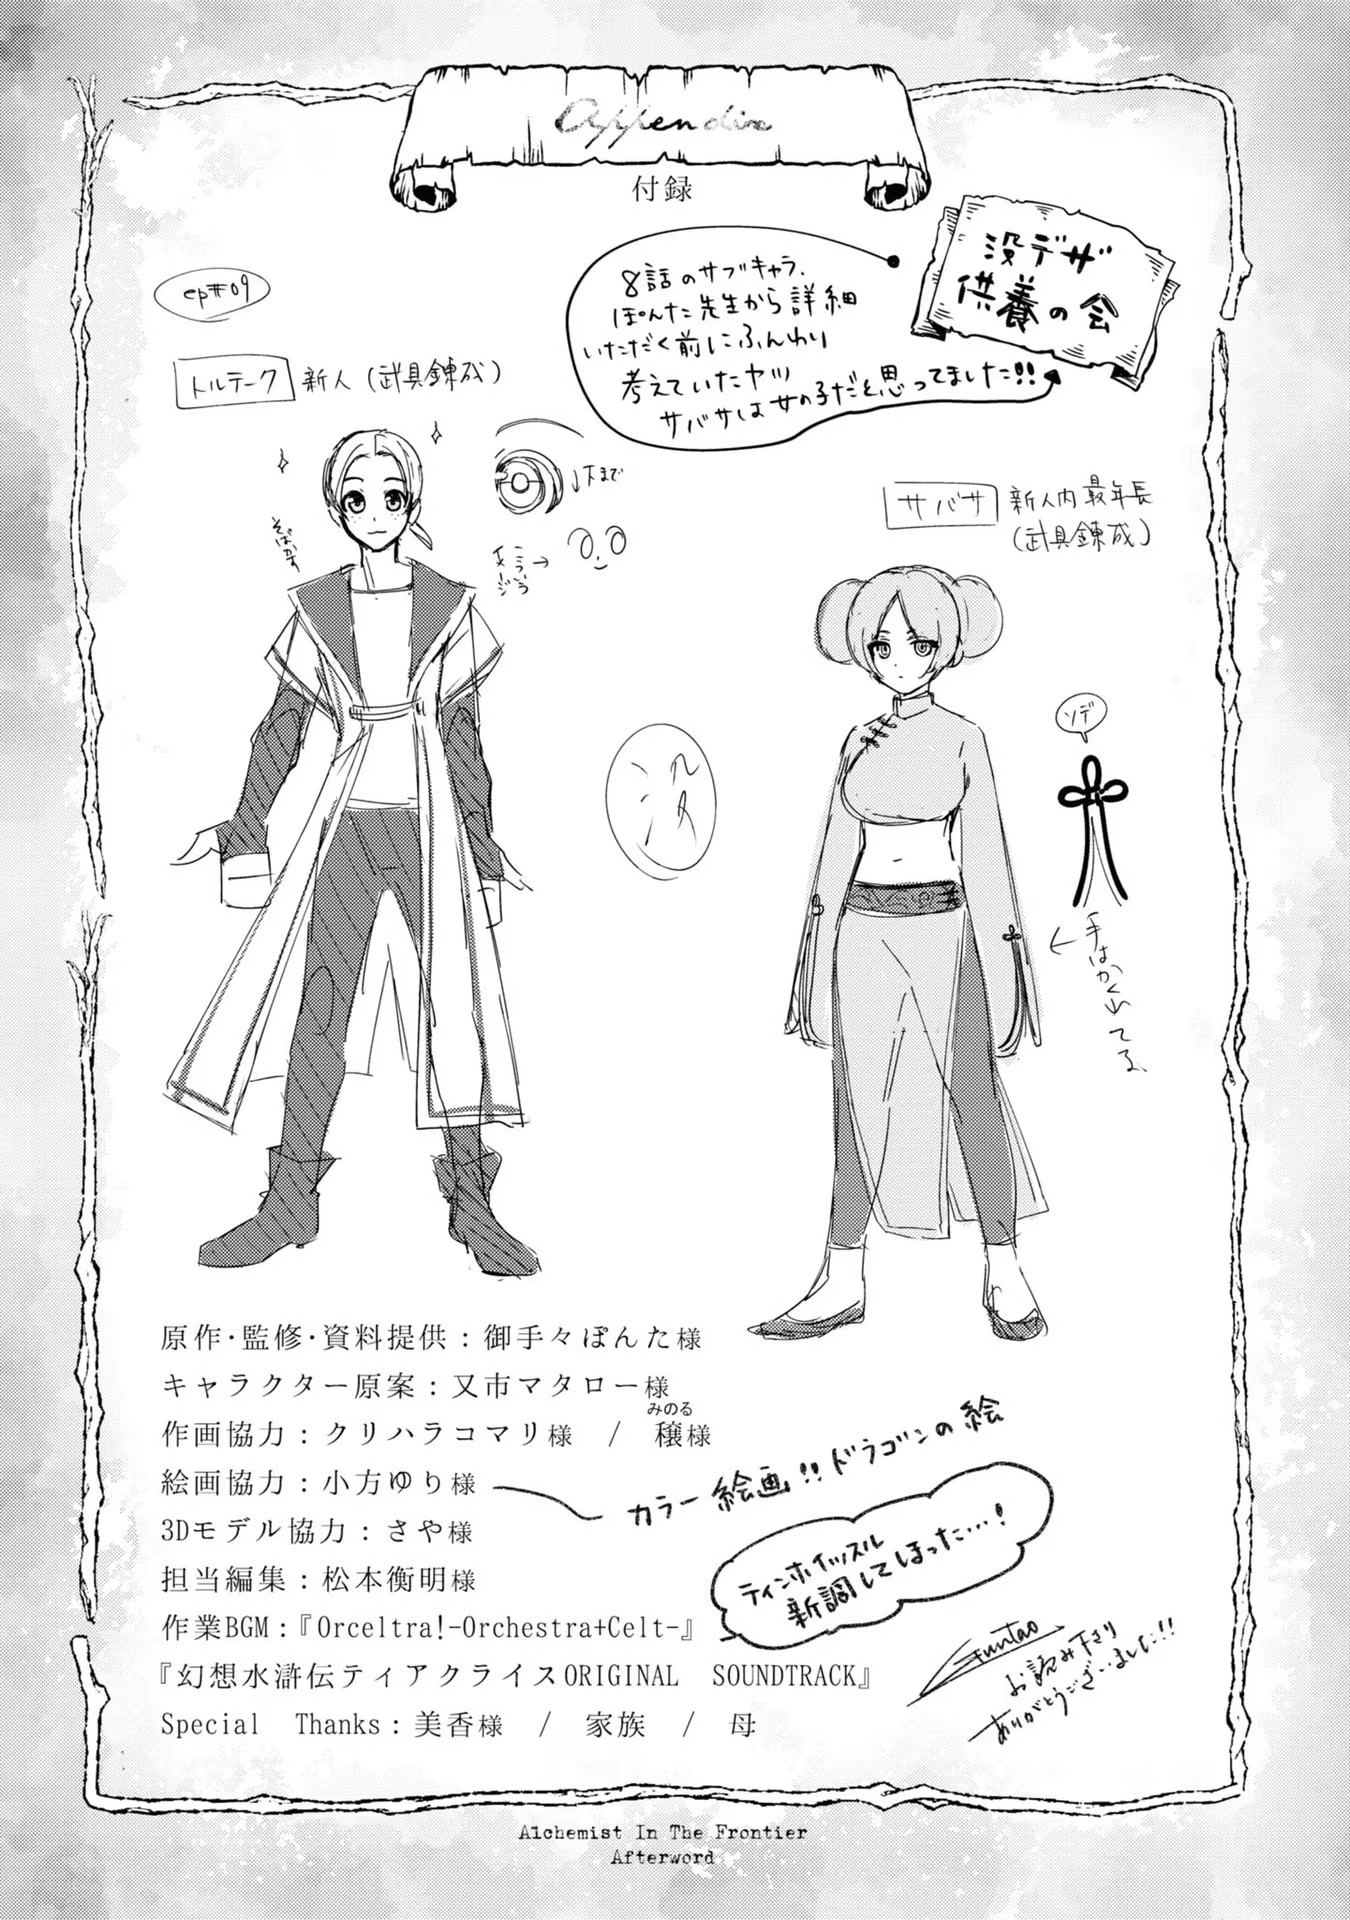 Appendix
付録
没デザ
供養の会
8話のサブキャラ、
ぽんた先生から詳細
いただく前にふんわり
考えていたヤツ
サバサは女の子だと思ってました!!
ep#09
トルテーク 新人(武具錬成)
そばかす
↓下まで
こういう
イメージ
→
サバサ 新人内最年長
(武具錬成)
ソデ
←手はかくれてる、
没
原作・監修・資料提供:御手々ぽんた様
キャラクター原案:又市マタロー様
みのる
作画協力:クリハラコマリ様 / 穣様
絵画協力:小方ゆり様
カラー絵画!!ドラゴンの絵
3Dモデル協力:さや様
担当編集:松本衡明様
ティンホイッスル
新調してしまった…!
作業BGM:『Orceltra!-Orchestra+Celt-』
『幻想水滸伝ティアクライスORIGINAL SOUNDTRACK』
Special Thanks:美香様 / 家族 / 母
お読み下さり
ありがとうございました!!
Alchemist In The Frontier
Afterword